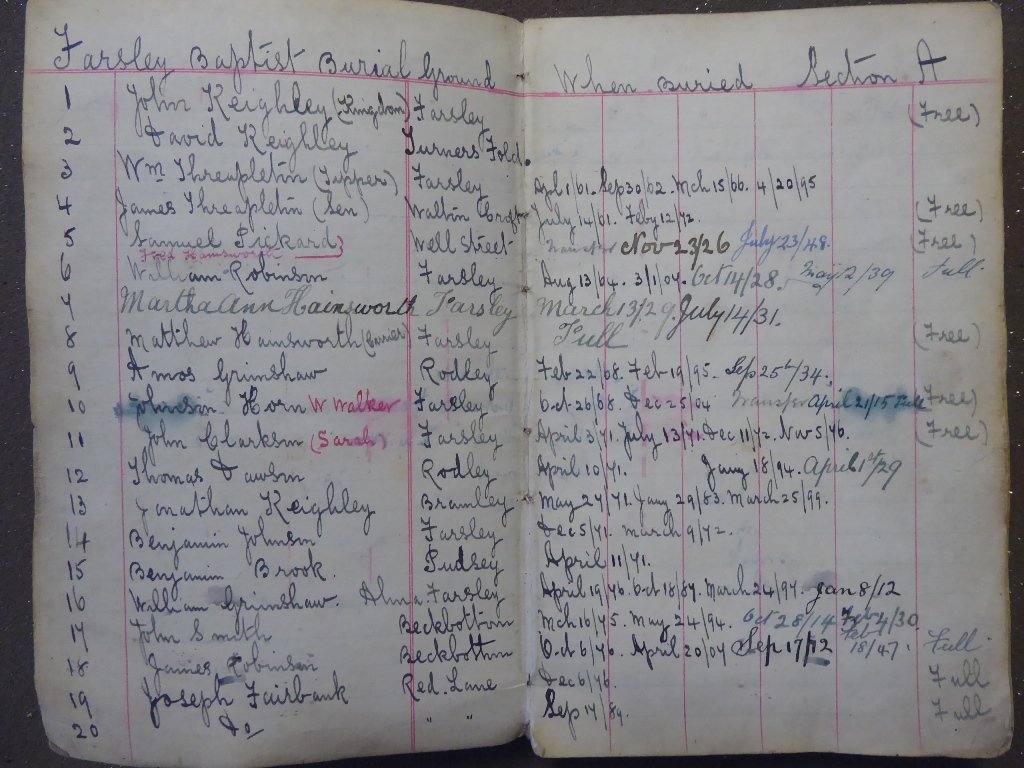 Farsley Baptist Burial Ground When Buried Section A
1 John Keighley (Kingdom) Farsley (Free)
2 David Keighley Turners Fold.
3 Wm Threapleton (Tupper) Farsley Apl 1/61. Sep 30/62. Mch 15/66. 4/20/95
4 James Threapleton (Sen) Croft July 14/61. Feby 12/72. (Free)
5 Samuel Pickard Well Street Transfer Nov 23/26 July 23/48. (Free)
Fred Hainsworth
6 William Robinson Farsley Aug 13/64. 3/1/04. Oct 14/28. May 2/39 Full
7 Martha Ann Hainsworth Farsley March 13/29 July 14/31.
8 Matthew Hainsworth (Carrier) Farsley Full (Free)
9 Amos Grimshaw Rodley Feb 22/68. Feb 19/95. Sep 25th/34.
10 Johnson Horn W Walker Farsley Oct 26/68. Dec 25/04 Transfer April 21/15 Full (Free)
11 John Clarkson (Sarah) Farsley April 3/71. July 13/71. Dec 11/72. Nov 5/76. (Free)
12 Thomas Dawson Rodley April 10/71. Jany 18/94. April 1st/29
13 Jonathan Keighley Bramley May 27/71. Jany 29/83. March 25/99.
14 Benjamin Johnson Farsley Dec 5/71. March 9/72.
15 Benjamin Brook. Pudsey April 11/71.
16 William Grimshaw. Alma. Farsley April 19/76. Oct 18/87. March 24/97. Jan 8/12
17 John Smith Beckbottom Mch 16/75. May 24/94. Oct 28/14 Feby 4/30
18 James Robinson Beckbottom Oct 6/76. April 20/07 Sep 17/12 Feb 18/47. Full
19 Joseph Fairbank Red. Lane Dec 6/76. Full
20 Do " " Sep 17/89. Full